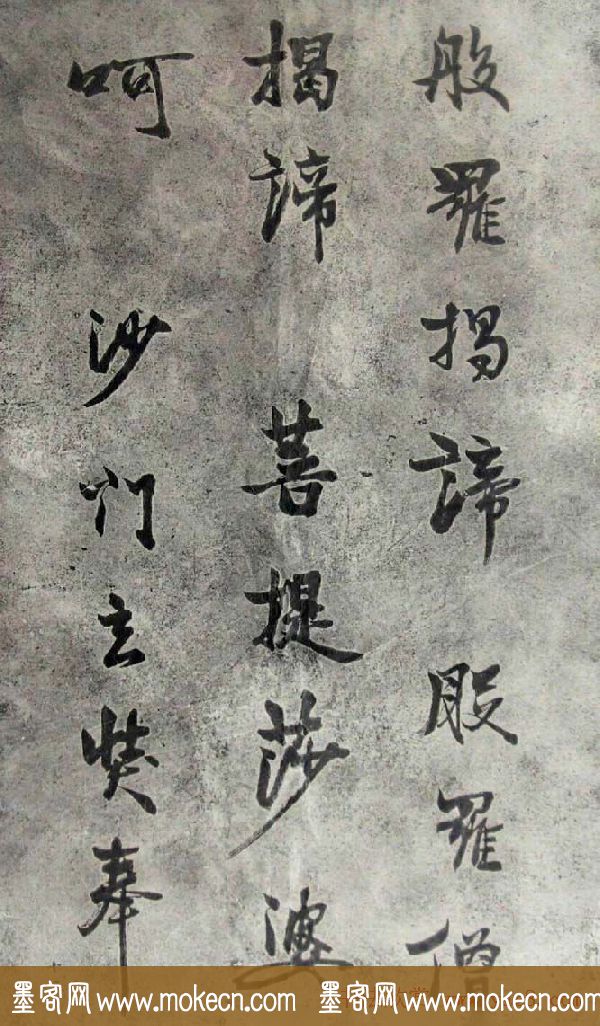 般羅揭諦 般羅僧
揭諦 菩提莎婆
呵 沙門玄奘奉
墨客网 www.mokecn.com 墨客网 www.mokecn.com